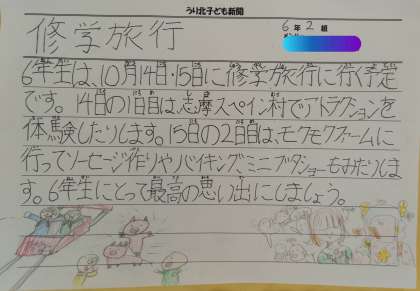 うり北子ども新聞
6年2組
修学旅行
6年生は、10月14日・15日に修学旅行に行く予定
です。14日の1日目は、志摩スペイン村でアトラクションを
体験したりします。15日の2日目は、モクモクファームに
行ってソーセージ作りやバイキング、ミニブタショーもみたりしま
す。6年生にとって最高の思い出にしましょう。